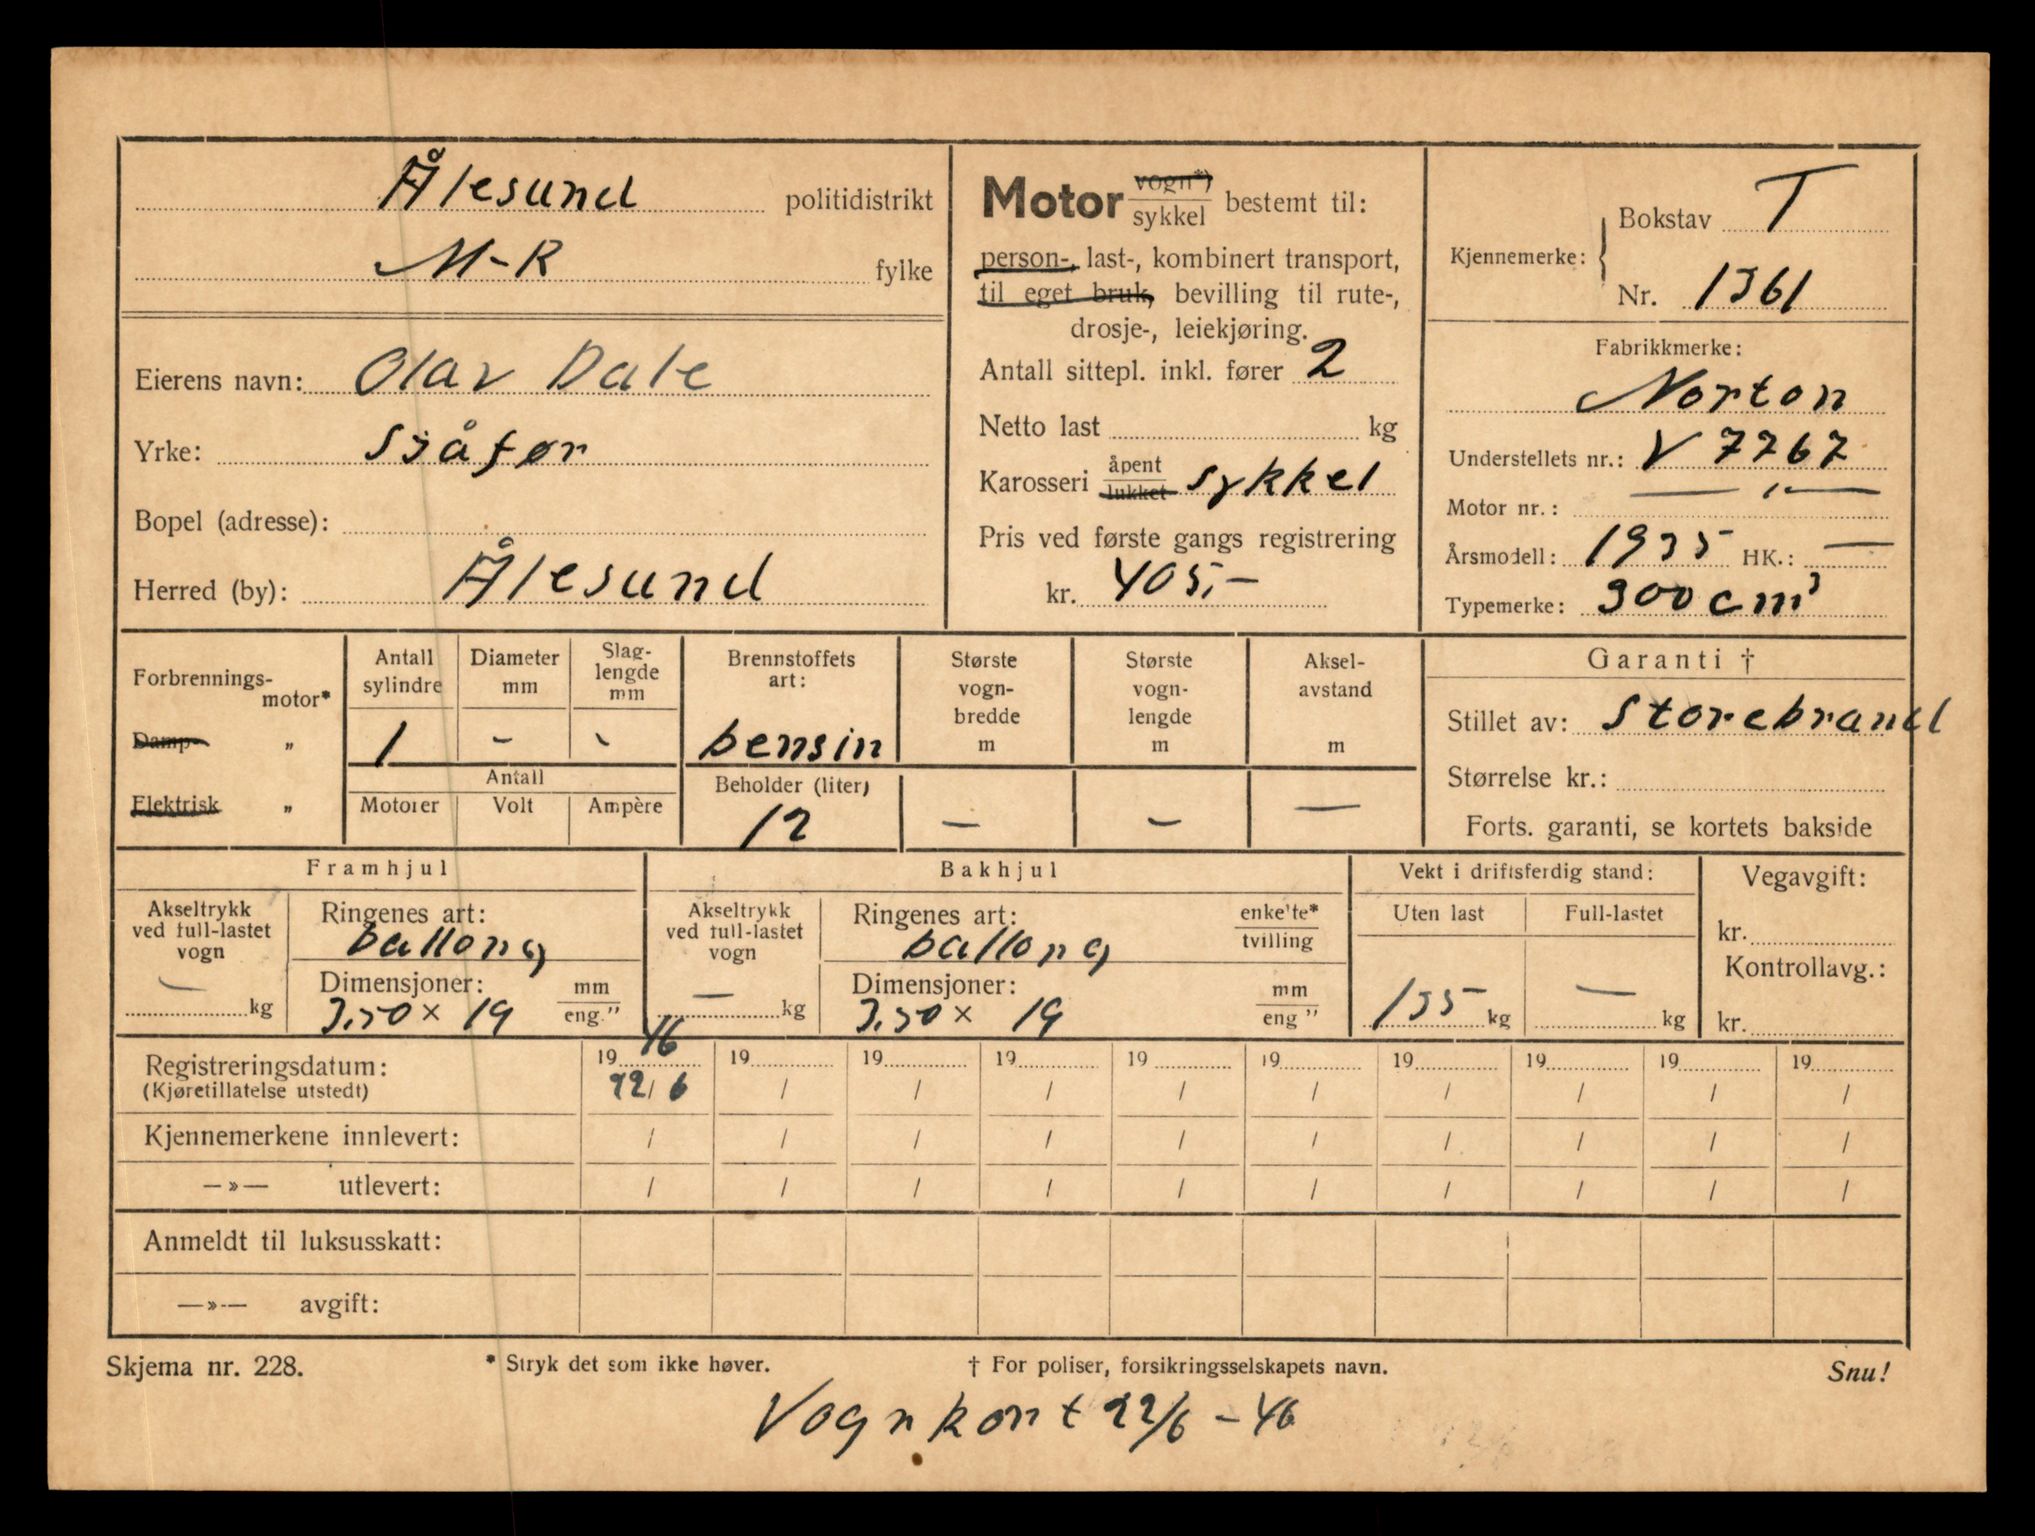 Ålesund politidistrikt
M-R fylke
Eierens navn: Olav Dale
Yrke: Sjåfør
Bopel (adresse):
Herred (by): Ålesund
Motor vogn*) sykkel bestemt til:
person-, last-, kombinert transport,
til eget bruk, bevilling til rute-,
drosje-, leiekjøring.
Antall sittepl. inkl. fører 2
Netto last kg
Karosseri åpent lukket sykkel
Pris ved første gangs registrering
kr. 405,-
Kjennemerke: Bokstav T
Nr. 1361
Fabrikkmerke:
Norton
Understellets nr.: V 7267
Motor nr.: — " —
Årsmodell: 1935 HK.: —
Typemerke: 300 cm³
Forbrennings-motor*
Damp- „
Elektrisk „
Antall sylindre
1
Diameter mm
-
Slaglengde mm
-
Antall
Motorer Volt Ampère
Brennstoffets art:
bensin
Beholder (liter)
12
Største vognbredde m
—
Største vognlengde m
—
Akselavstand m
—
Garanti †
Stillet av: Storebrand
Størrelse kr.:
Forts. garanti, se kortets bakside
Framhjul
Akseltrykk ved full-lastet vogn
— kg
Ringenes art:
ballong
Dimensjoner: mm eng."
3.50 × 19
Bakhjul
Akseltrykk ved full-lastet vogn
— kg
Ringenes art: enkelte* tvilling
ballong
Dimensjoner: mm eng "
3.50 × 19
Vekt i driftsferdig stand:
Uten last Full-lastet
135 kg — kg
Vegavgift:
kr.
Kontrollavg.:
kr.
Registreringsdatum: 1946 19 19 19 19 19 19 19 19 19
(Kjøretillatelse utstedt) 22/6 / / / / / / / / /
Kjennemerkene innlevert: / / / / / / / / / /
—»— utlevert: / / / / / / / / / /
Anmeldt til luksusskatt:
—»— avgift:
Skjema nr. 228. * Stryk det som ikke høver. † For poliser, forsikringsselskapets navn. Snu!
Vognkort 22/6 - 46